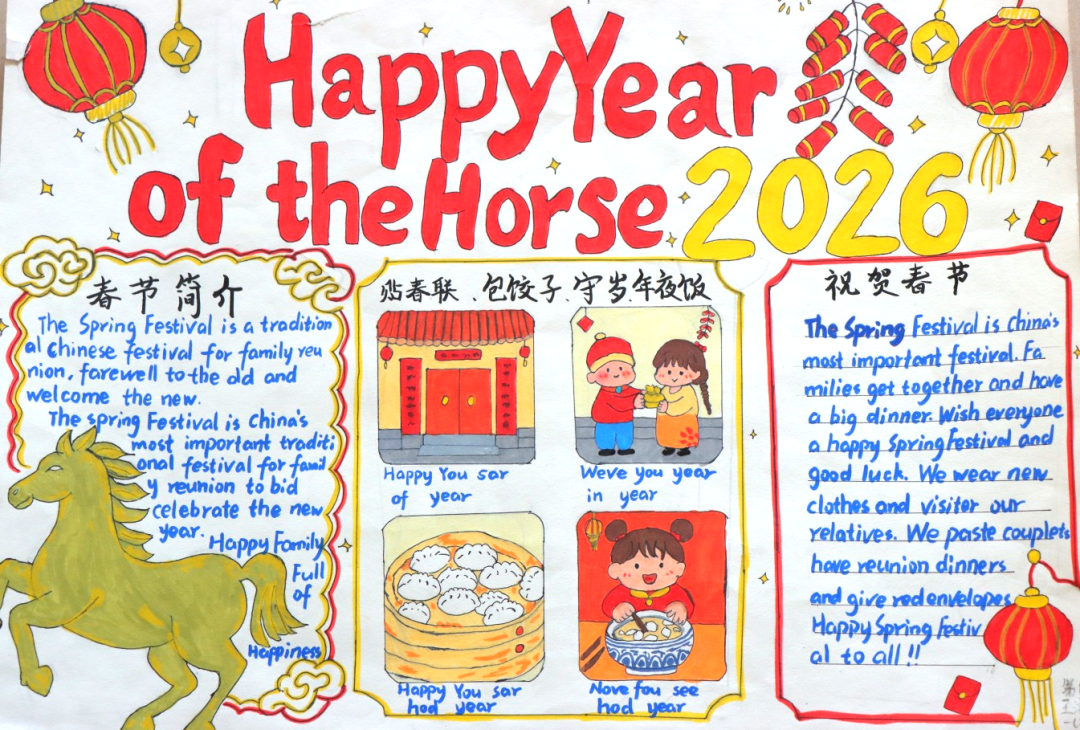 Happy Year
of the Horse 2026
春节简介
The Spring Festival is a tradition
al Chinese festival for family reu
nion, farewell to the old and
welcome the new.
The spring Festival is China's
most important traditi
onal festival for famil
y reunion to bid
celebrate the new
year.
Happy Family
Full
of
Happiness
贴春联、包饺子、守岁、年夜饭
Happy You sar
of year
Weve you year
in year
Happy You sar
hod year
Nove fou see
hod year
祝贺春节
The Spring Festival is China's
most important festival. Fa
milies get together and have
a big dinner. Wish everyone
a happy Spring Festival and
good luck. We wear new
clothes and visiter our
relatives. We paste couplets
have reunion dinners
and give red envelopes
Happy Spring Festiv
al to all!!